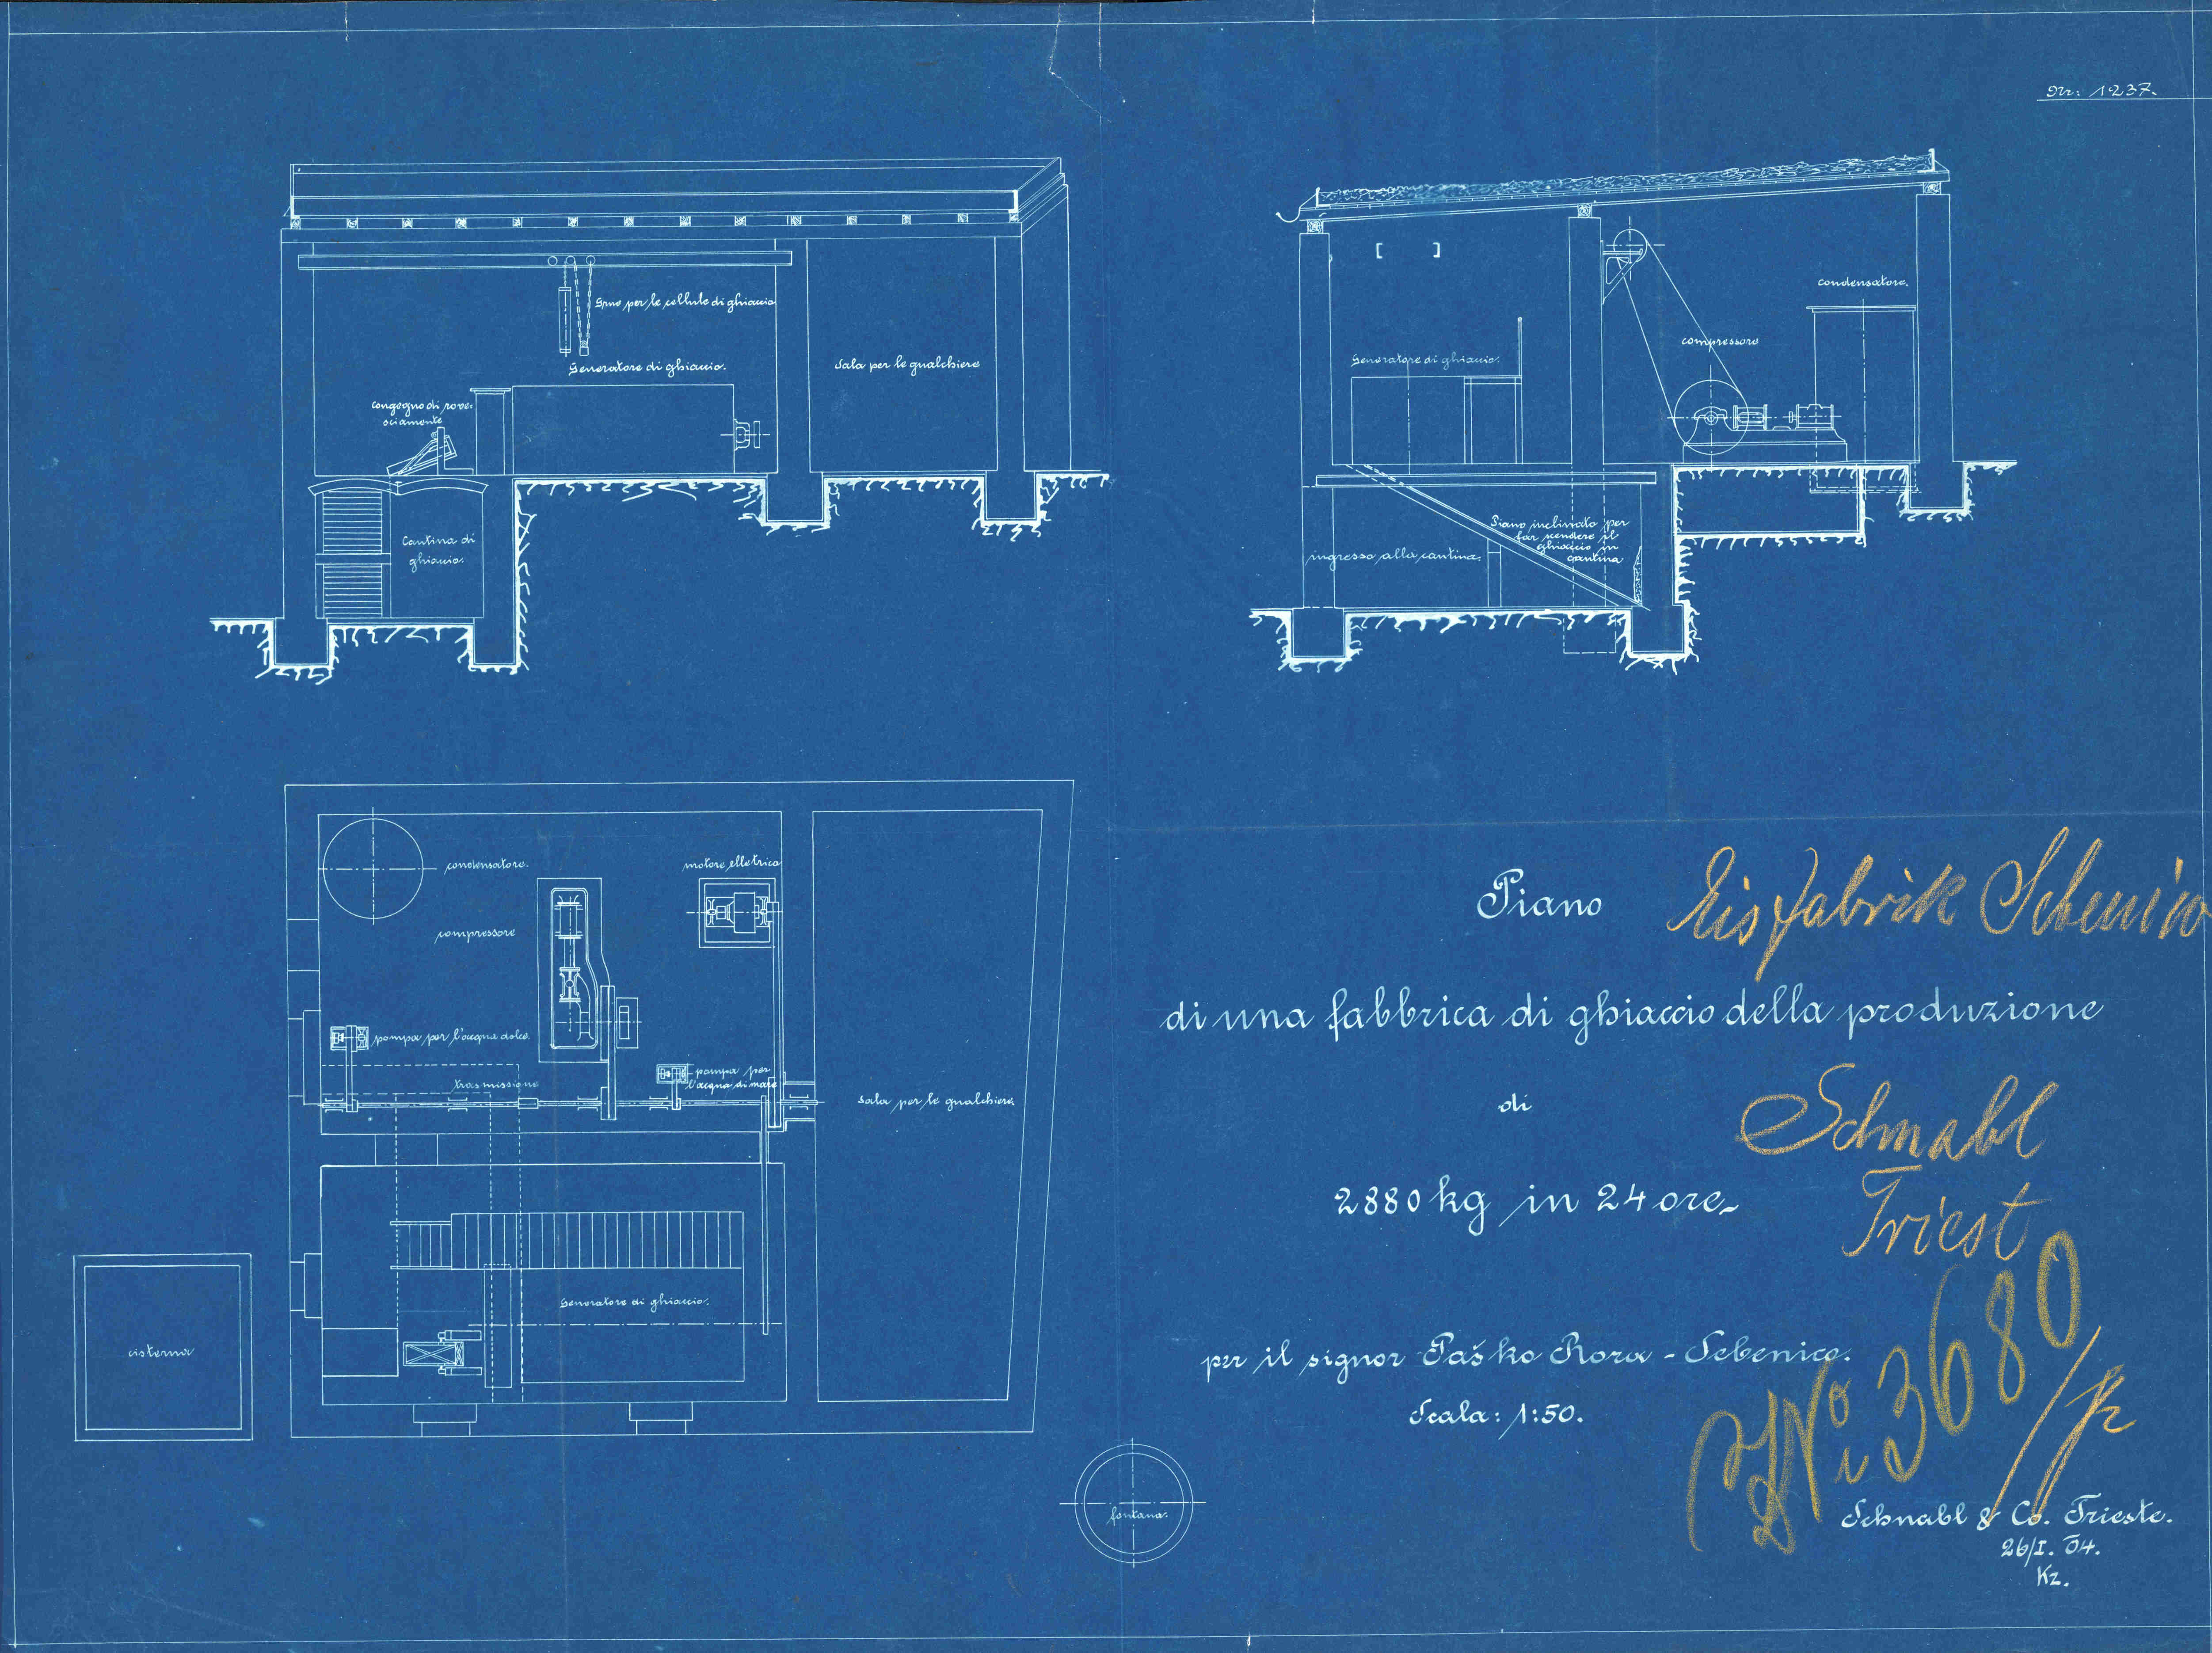 Nr: 1237.
Grue per le cellule di ghiaccio
Generatore di ghiaccio.
Sala per le gualchiere
congegno di rove-
sciamento
Cantina di
ghiaccio.
condensatore.
compressore
Generatore di ghiaccio.
Piano inclinato per
far scendere il
ghiaccio in
cantina
ingresso alla cantina.
condensatore.
motore elletrico
compressore
pompa per l'acqua dolce.
pompa per
l'acqua di mare
trasmissione
sala per le gualchiere
Generatore di ghiaccio.
cisterna
fontana.
Piano
Eisfabrik Sebenico
di una fabbrica di ghiaccio della produzione
di
Schnabl
Triest
2880 kg in 24 ore.
per il signor Paško Rora - Sebenico.
Scala: 1:50.
No 3680
Schnabl & Co. Trieste.
26/I. 04.
Kz.